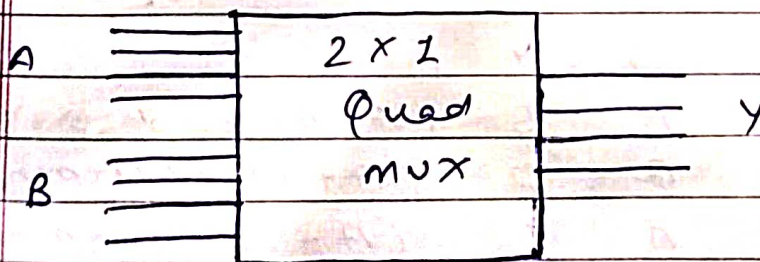 A
2 x 1
Quad
MUX
Y
B